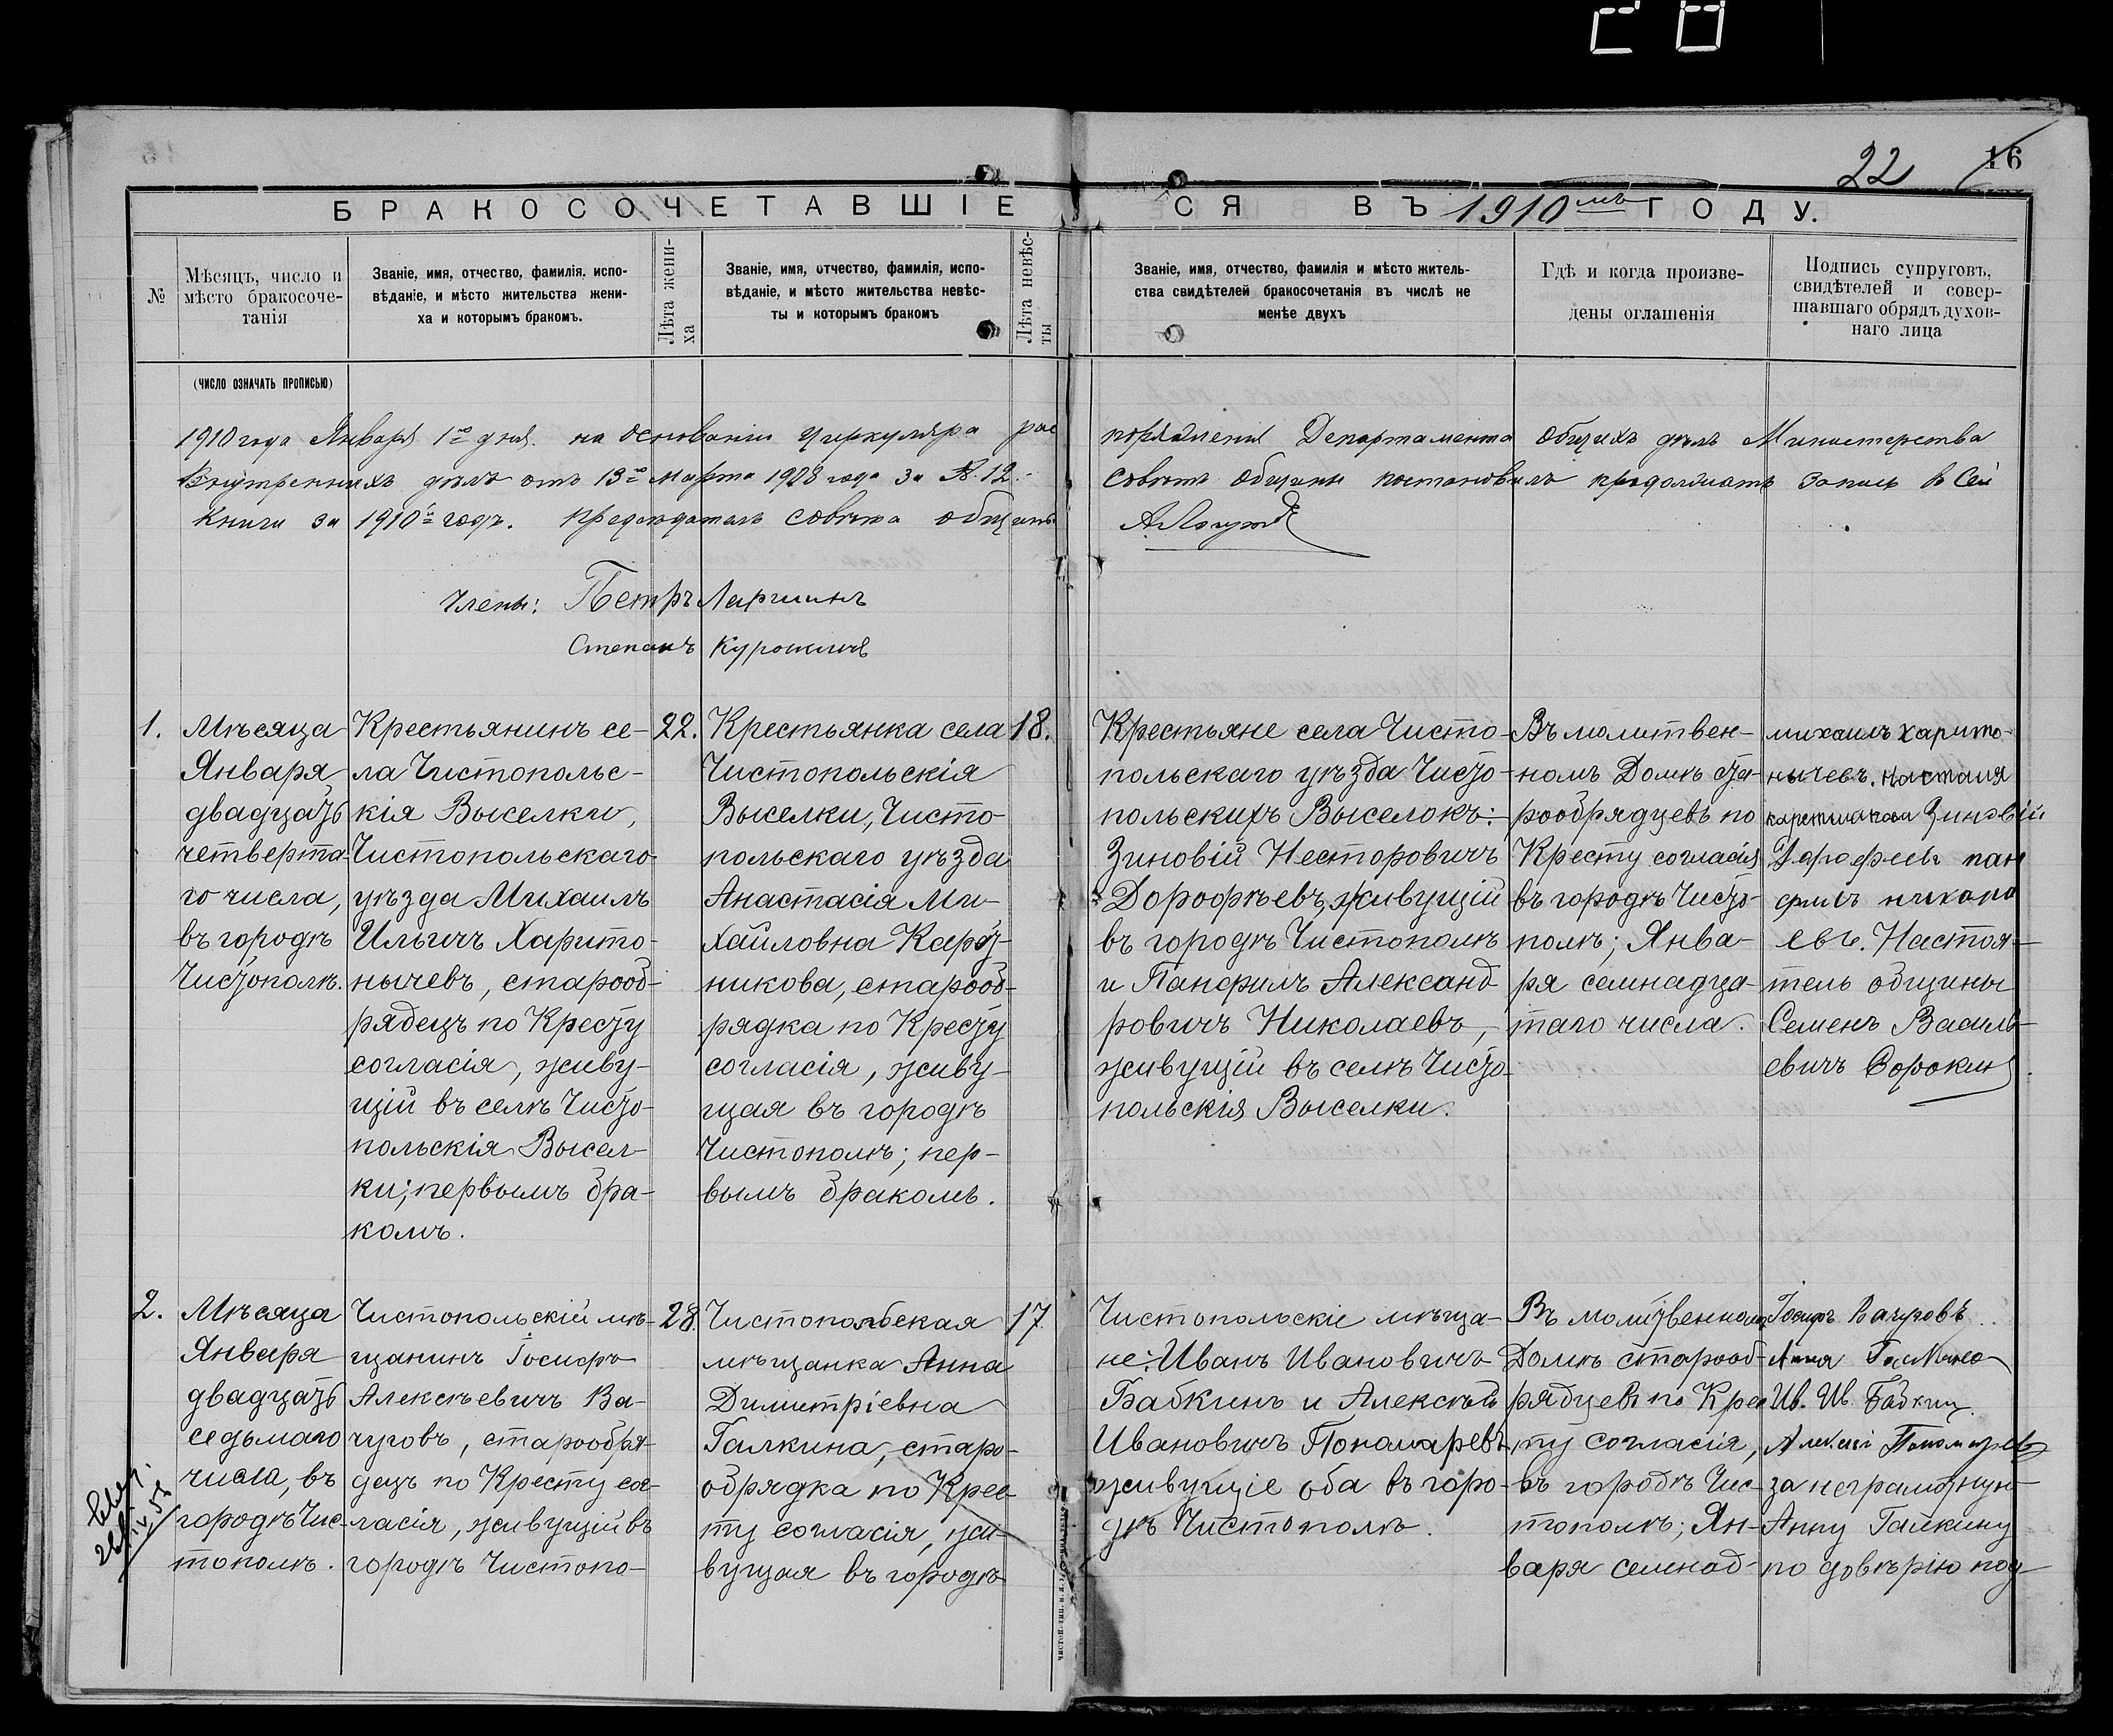 22 16
БРАКОСОЧЕТАВШІЕСЯ ВЪ 1910мъ ГОДУ.
№
Мѣсяцъ, число и
мѣсто бракосоче-
танія
(ЧИСЛО ОЗНАЧАТЬ ПРОПИСЬЮ)
Званіе, имя, отчество, фамилія, испо-
вѣданіе, и мѣсто жительства жени-
ха и которымъ бракомъ.
Лѣта жени-
ха
Званіе, имя, отчество, фамилія, испо-
вѣданіе, и мѣсто жительства невѣс-
ты и которымъ бракомъ
Лѣта невѣс-
ты
Званіе, имя, отчество, фамилія и мѣсто житель-
ства свидѣтелей бракосочетанія въ числѣ не
менѣе двухъ
Гдѣ и когда произве-
дены оглашенія
Подпись супруговъ,
свидѣтелей и совер-
шавшаго обрядъ духов-
наго лица
1910 года Января 1го дня. на основаніи Циркуляра рас поряженія Департамента Общихъ дѣлъ Министерства
Внутреннихъ дѣлъ отъ 13го Марта 1908 года за №. 12. Совѣтъ Общины постановилъ продолжать запись в сей
книги за 1910й годъ. Предсѣдатель Совѣта общины
Члены: Петръ Ларшинъ
Степанъ
1.
Мѣсяца
Января
двадцать
четверта-
го числа,
въ городѣ
Чистополѣ.
Крестьянинъ се-
ла Чистопольс-
кія Выселки,
Чистопольскаго
уѣзда Михаилъ
Ильичъ Харито-
нычевъ, старооб-
рядецъ по Кресту
согласія, живу-
щій въ селѣ Чисто-
польскія Высел-
ки; первымъ бра-
комъ.
22.
Крестьянка села
Чистопольскія
Выселки, Чисто-
польскаго уѣзда
Анастасія Ми-
хайловна Карт-
никова, старооб-
рядка по Кресту
согласія, живу-
щая въ городѣ
Чистополѣ; пер-
вымъ бракомъ.
18.
Крестьяне села Чисто-
польскаго уѣзда Чисто-
польскихъ Выселокъ:
Зиновій Несторовичъ
Дорофѣевъ, живущій
въ городѣ Чистополѣ
и Панфилъ Александ-
ровичъ Николаевъ,
живущій въ селѣ Чисто-
польскія Выселки.
Въ молитвен-
номъ Домѣ ста-
рообрядцевъ по
Кресту согласія
въ городѣ Чисто-
полѣ; Янва-
ря семнадца-
таго числа.
михаилъ харито-
нычевъ. настасия
Зиновій
Дорофеевъ пан
филъ никола
евъ. Настоя-
тель общины
Семенъ Василь-
евичъ Сорокинъ
2.
Мѣсяца
Января
двадцать
седьмаго
числа, въ
городѣ Чис-
тополѣ.
Чистопольскій мѣ-
щанинъ Іосифъ
Алексѣевичъ Ва-
чуговъ, старообря-
децъ по Кресту со-
гласія, живущій въ
городѣ Чистопо-
28.
Чистопольская
мѣщанка Анна
Димитріевна
Галкина, старо-
обрядка по Крес-
ту согласія, жи-
вущая въ городѣ
17
Чистопольскіе мѣща-
не: Иванъ Ивановичъ
Бабкинъ и Алексѣй
Ивановичъ Пономаревъ,
живущіе оба въ горо-
дѣ Чистополѣ.
Въ молитвенномъ
Домѣ старооб-
рядцевъ по Крес
ту согласія,
въ городѣ Чис-
тополѣ; Ян-
варя семнад-
Іосифъ Вачуговъ
Анна Галкина
Ив. Ив. Бабкин
Алексей Пономарев
за неграмотную
Анну Галкину
по довѣрію под